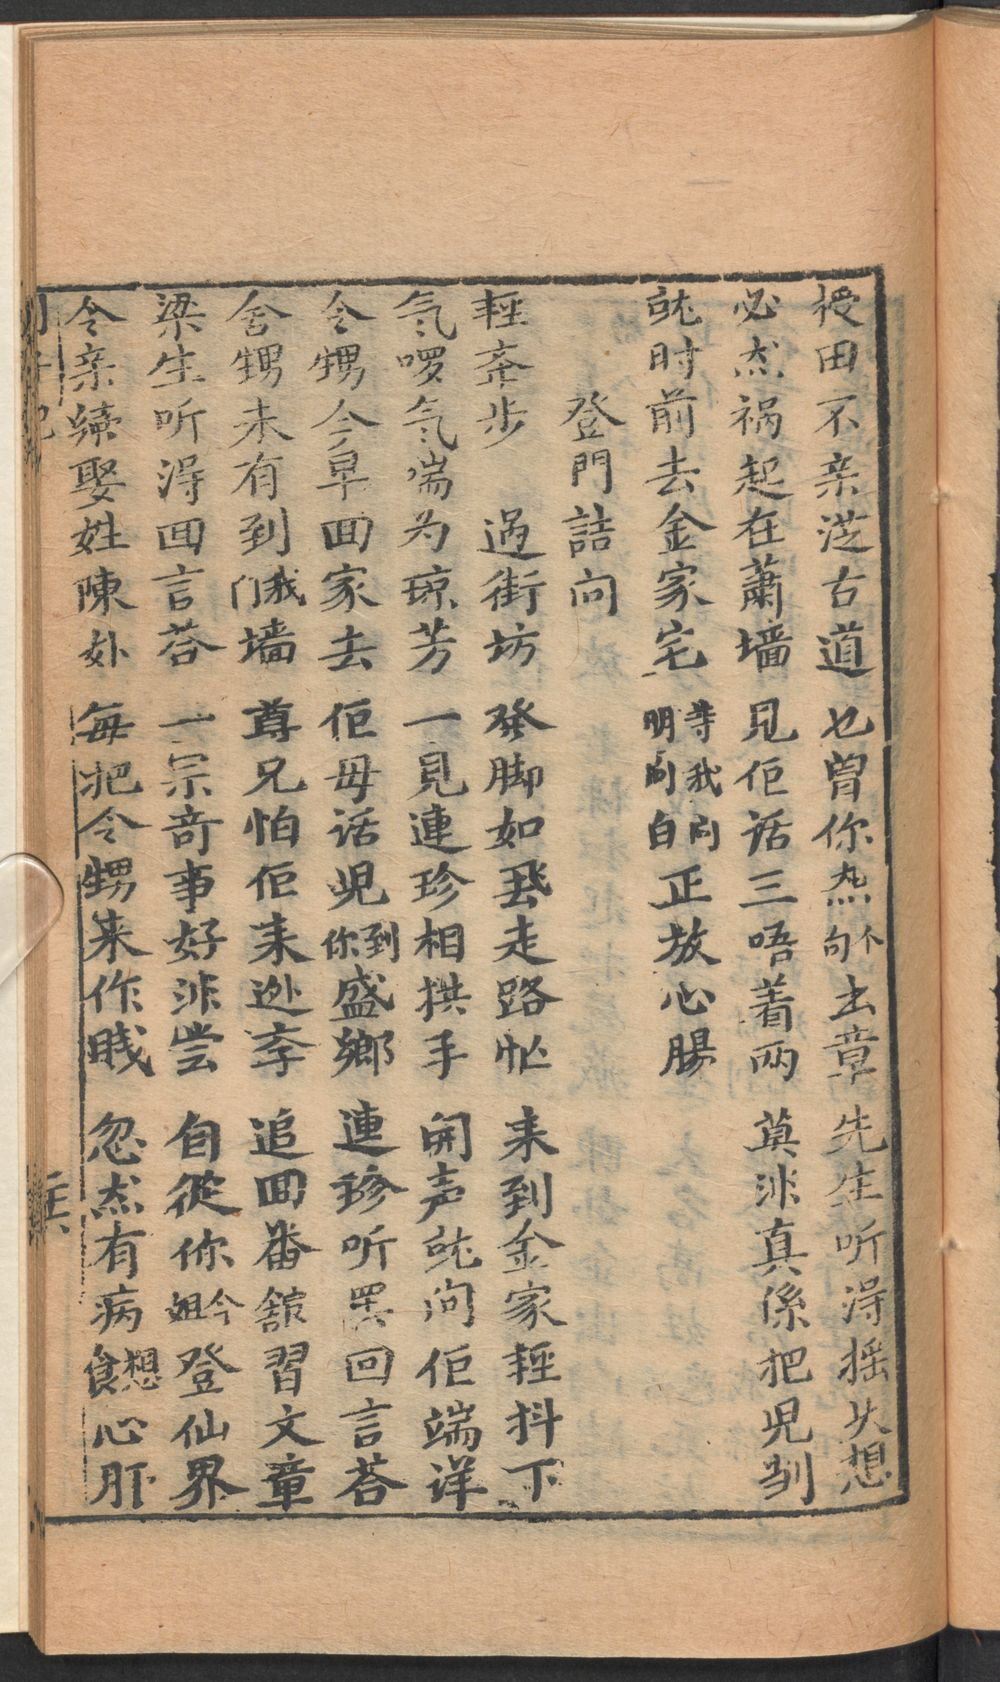 授田不亲泛古道　也曾你热不句出章　先生听得摇头想
必杰祸起在蕭墙　见佢话三唔着两　莫非真係把児㓥
就时前去金家宅　等我问明问白正放心腸
登門詰问
輕奔步　過街坊　發脚如飛走路忙　来到金家輕抖下
气啰气喘为琼芳　一見連珍相拱手　開声就问佢端详
令甥今早回家去　佢母话児到你盛鄉　連珍听罢回言答
舍甥未有到我门墙　尊兄怕佢来逃孝　追回番舘習文章
梁生听得回言答　一宗奇事好非尝　自從你令姐登仙界
令亲續娶姓陳外　每把令甥来作賎　忽杰有病想食心肝